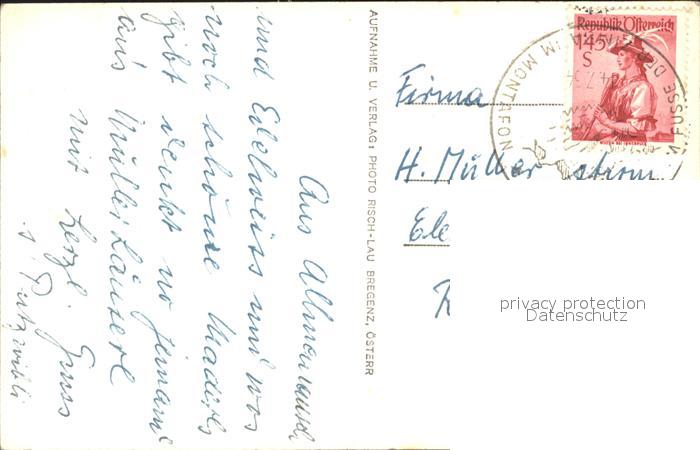 Aus Allmenrausch
und Edelweiss und wos
noch schöne Madirls
gibt denkt no jemand
ans Müller Läuserl
mit herzl. Gruss
s'Putzwibli
AUFNAHME U. VERLAG: PHOTO RISCH-LAU BREGENZ, ÖSTERR
Republik Österreich
1.45
S
IM MONTAFON
FUSSE
Firma
H. Müller strom
Ele
privacy protection
Datenschutz